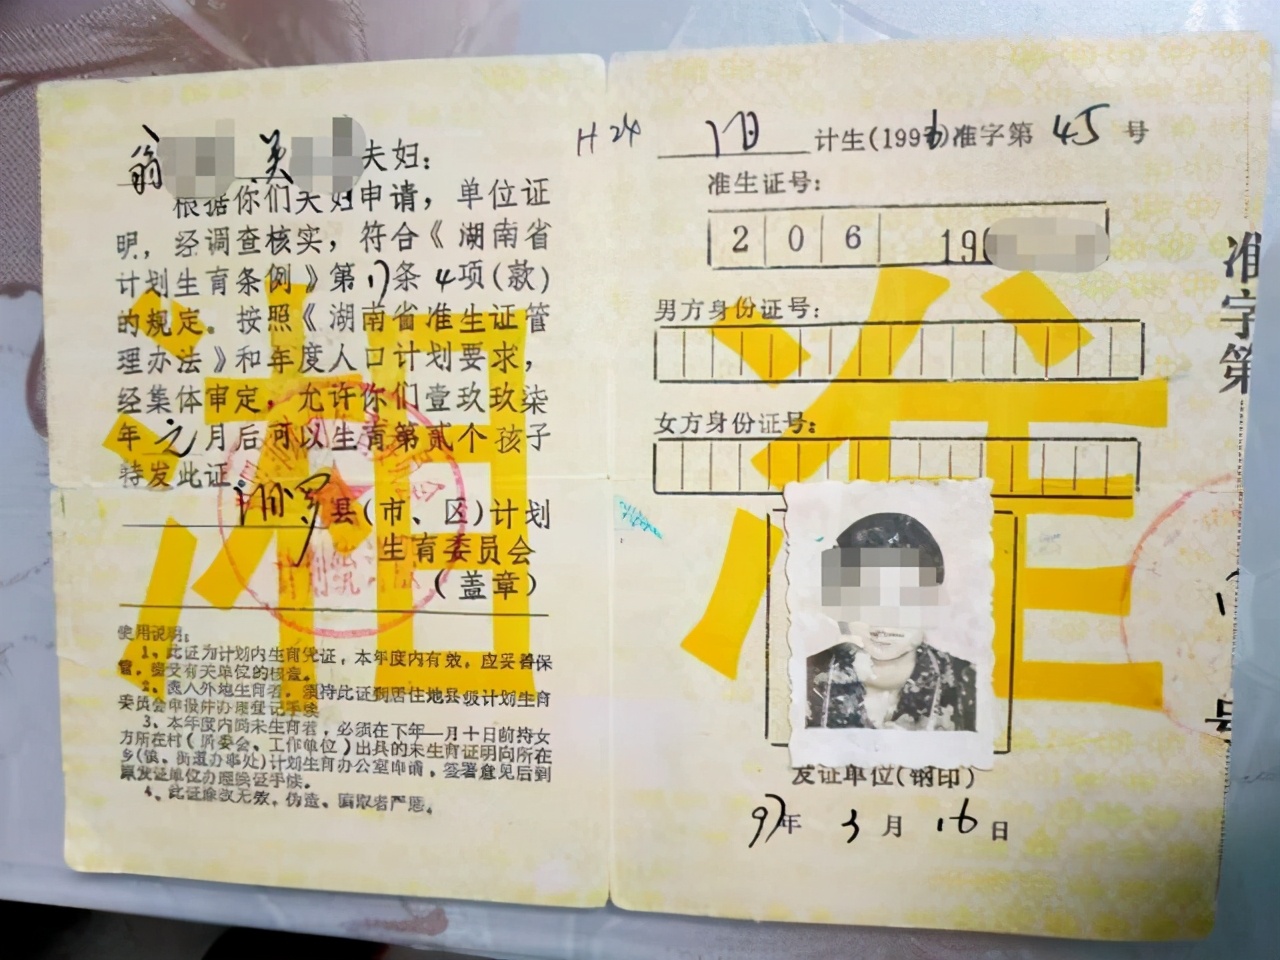 翁 美 夫妇：
根据你们夫妇申请，单位证
明，经调查核实，符合《湖南省
计划生育条例》第17条4项(款)
的规定。按照《湖南省准生证管
理办法》和年度人口计划要求，
经集体审定，允许你们壹玖玖柒
年元月后可以生育第贰个孩子
特发此证。
汨罗县(市、区)计划
生育委员会
(盖章)
使用说明：
1、此证为计划内生育凭证，本年度内有效。应妥善保
管，接受有关单位的核查。
2、怀孕外地生育者，须持此证到居住地县级计划生育
委员会申报并办理登记手续
3、本年度内尚未生育者，必须在下年一月十日前持女
方所在村(居委会、工作单位)出具的未生育证明向所在
乡(镇、街道办事处)计划生育办公室申请，签署意见后到
原发证单位办理换证手续。
4、此证涂改无效，伪造、骗取者严惩。
H 24
汨 计生(199)准字第 45 号
准生证号：
206 19
男方身份证号：
女方身份证号：
发证单位(钢印)
97年3月16日
准字第
号
湘
准